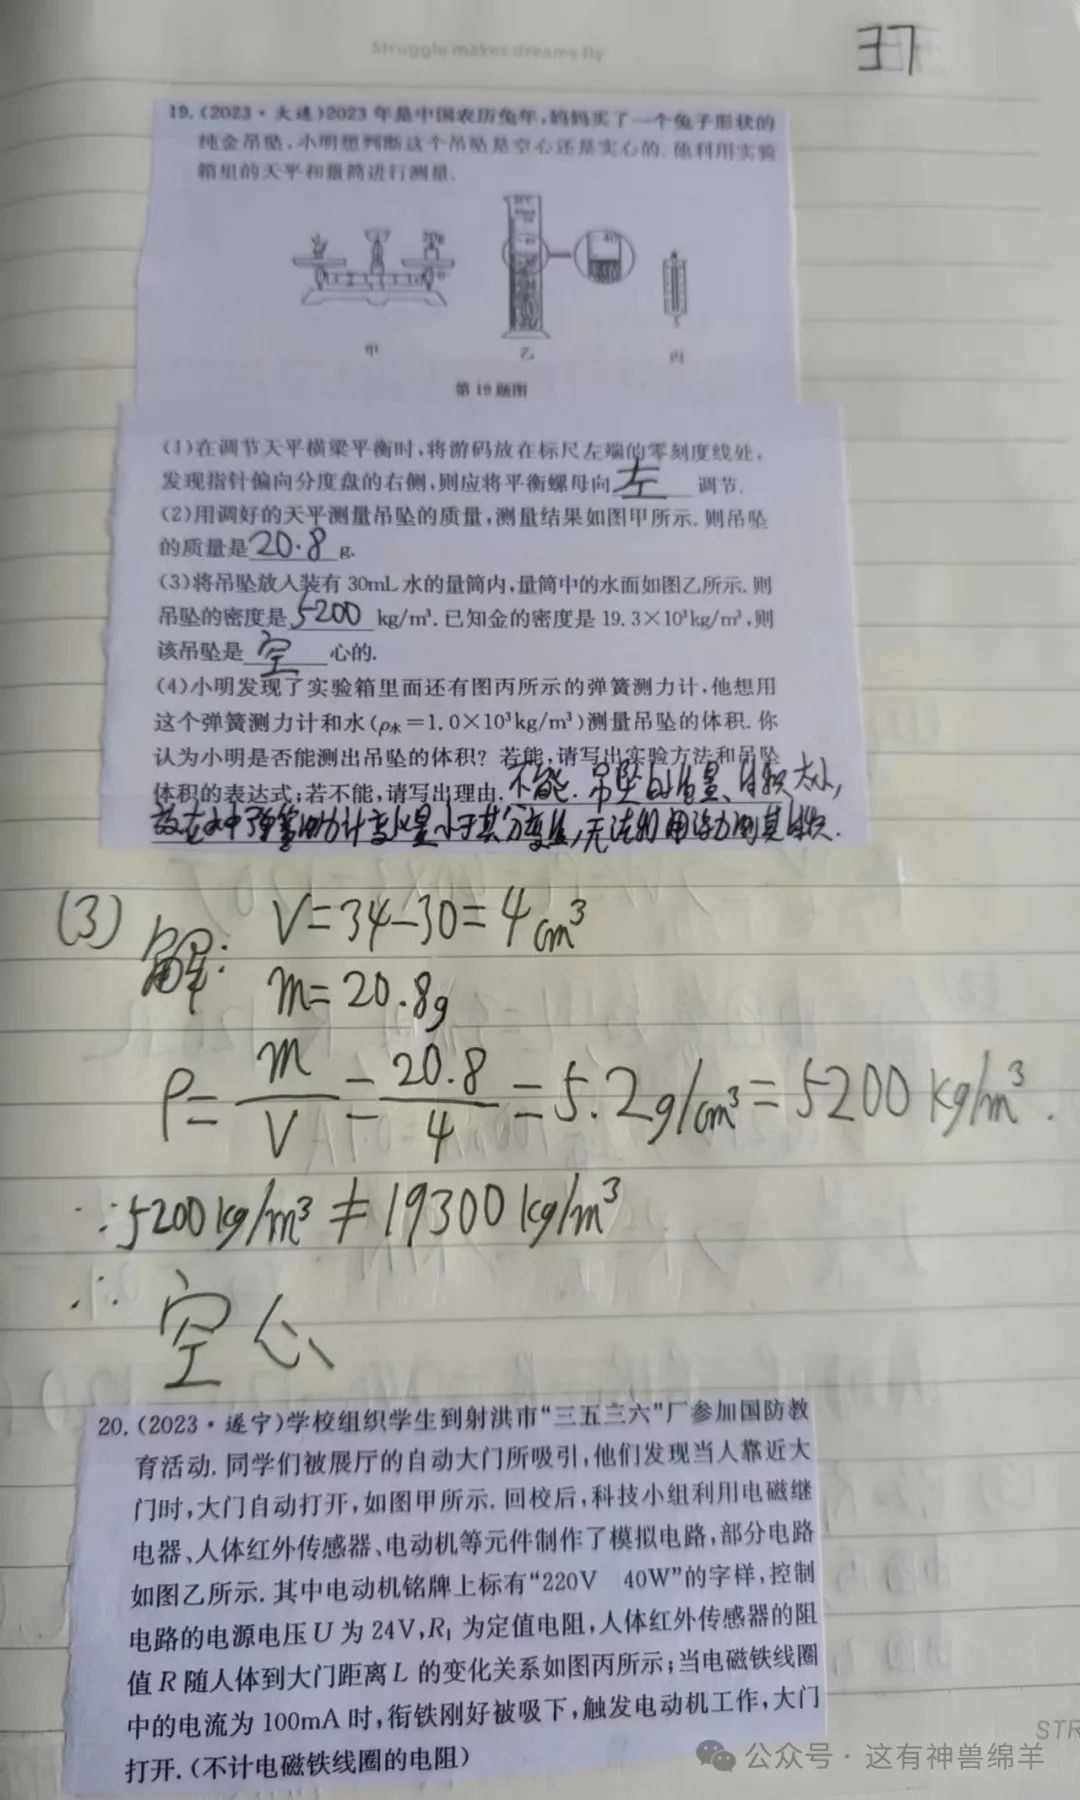 Struggle makes dreams fly
37
19.(2023·大连)2023年是中国农历兔年,妈妈买了一个兔子形状的
纯金吊坠,小明想判断这个吊坠是空心还是实心的.他利用实验
箱组的天平和量筒进行测量.
甲
乙
丙
第19题图
(1)在调节天平横梁平衡时,将游码放在标尺左端的零刻度线处,
发现指针偏向分度盘的右侧,则应将平衡螺母向 左 调节.
(2)用调好的天平测量吊坠的质量,测量结果如图甲所示.则吊坠
的质量是 20.8 g.
(3)将吊坠放入装有30mL水的量筒内,量筒中的水面如图乙所示.则
吊坠的密度是 5200 kg/m³.已知金的密度是19.3×10³kg/m³,则
该吊坠是 空 心的.
(4)小明发现了实验箱里面还有图丙所示的弹簧测力计,他想用
这个弹簧测力计和水(ρ水=1.0×10³kg/m³)测量吊坠的体积.你
认为小明是否能测出吊坠的体积?若能,请写出实验方法和吊坠
体积的表达式;若不能,请写出理由.不能.吊坠的质量、体积太小,
放在水中弹簧测力计变化量小于其分度值,无法利用浮力测其体积.
(3) 解: V=34-30=4cm³
m=20.8g
ρ=m/V=20.8/4=5.2g/cm³=5200kg/m³.
∵5200kg/m³≠19300kg/m³
∴空心
20.(2023·遂宁)学校组织学生到射洪市“三五三六”厂参加国防教
育活动.同学们被展厅的自动大门所吸引,他们发现当人靠近大
门时,大门自动打开,如图甲所示.回校后,科技小组利用电磁继
电器、人体红外传感器、电动机等元件制作了模拟电路,部分电路
如图乙所示.其中电动机铭牌上标有“220V 40W”的字样,控制
电路的电源电压U为24V,R₁为定值电阻,人体红外传感器的阻
值R随人体到大门距离L的变化关系如图丙所示;当电磁铁线圈
中的电流为100mA时,衔铁刚好被吸下,触发电动机工作,大门
打开.(不计电磁铁线圈的电阻)
STR
公众号·这有神兽绵羊